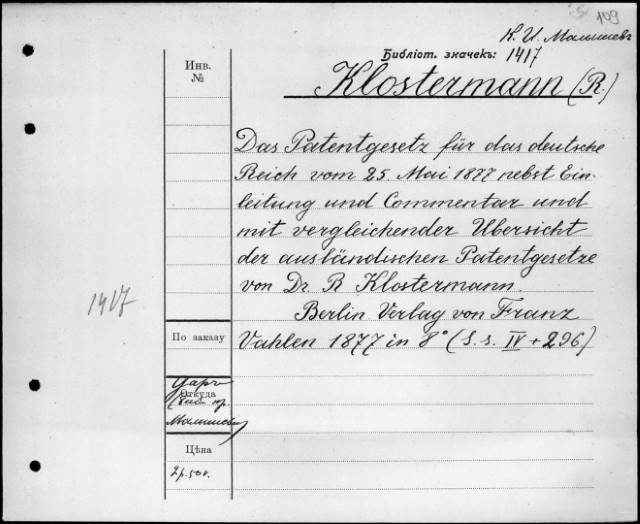 109
К. И. Малышевъ
Библіот. значекъ: 1417
Инв.
№
Klostermann (R.)
Das Patentgesetz für das deutsche
Reich vom 25 Mai 1877 nebst Ein-
leitung und Commentar und
mit vergleichender Übersicht
der ausländischen Patentgesetze
von Dr. R Klostermann.
Berlin Verlag von Franz
Vahlen 1877 in 8° (S. s. IV + 296)
1417
По заказу
Откуда
Малышева
Цѣна
2 р. 50 к.